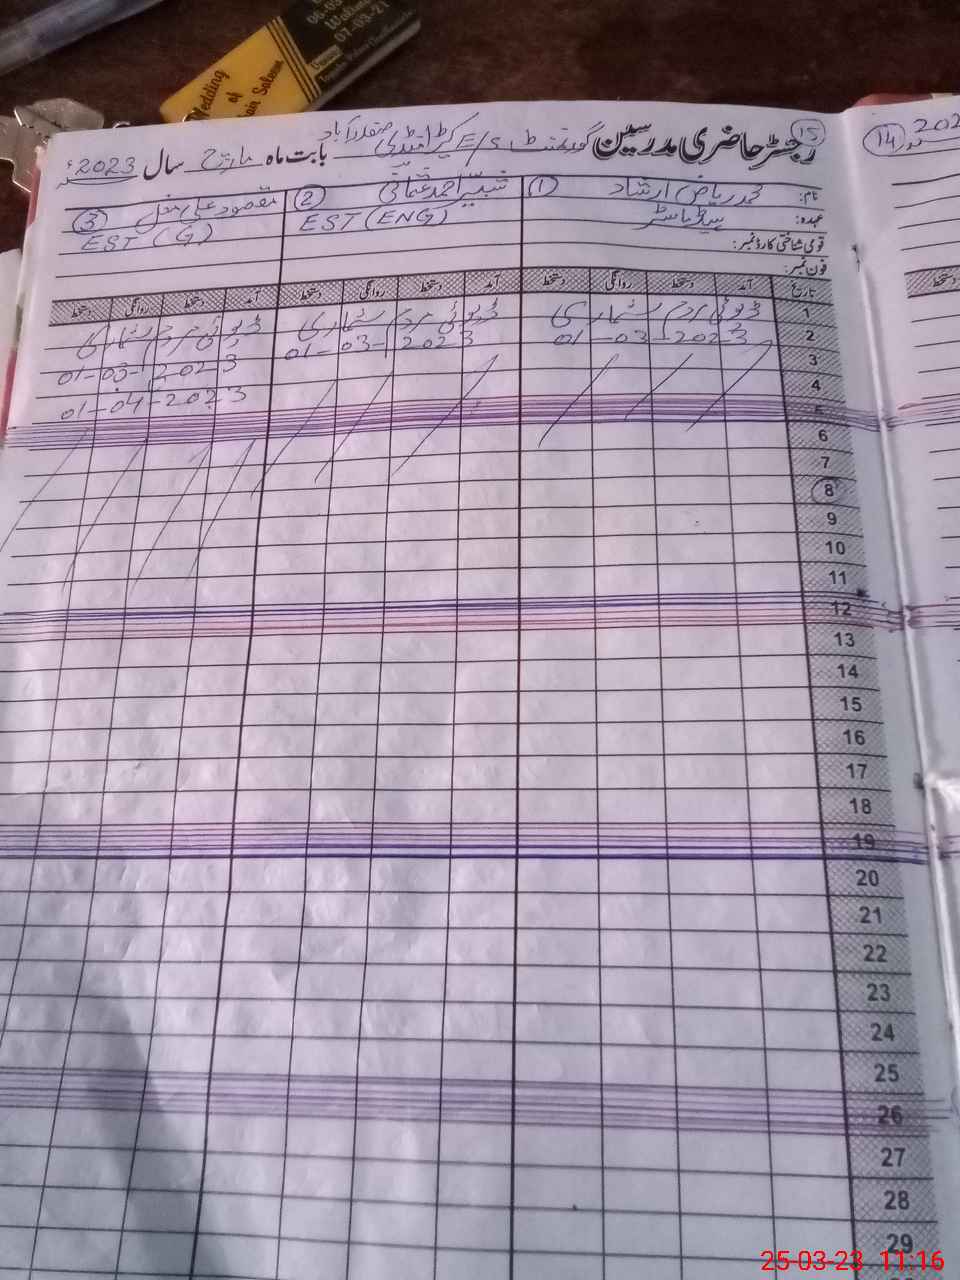 Wedding
of
Saleem
07-03-21
15
رجسٹر حاضری مدرسین گورنمنٹ E/S بابت ماہ مارچ سال 2023ء
14
202
نام: محمد ریاض ارشاد 1
شبیر احمد عثمانی 2
مقصود علی مغل 3
عہدہ: ہیڈ ماسٹر
EST (ENG)
EST (G)
قومی شناختی کارڈ نمبر:
فون نمبر:
تاریخ آمد دستخط روانگی دستخط آمد دستخط روانگی دستخط آمد دستخط روانگی دستخط
1 ڈیوٹی مردم شماری ڈیوٹی مردم شماری ڈیوٹی مردم شماری
2 01-03-2023 01-03-2023 01-03-2023
3 01-04-2023
4
5
6
7
8
9
10
11
12
13
14
15
16
17
18
19
20
21
22
23
24
25
26
27
28
29
25-03-23 11:16